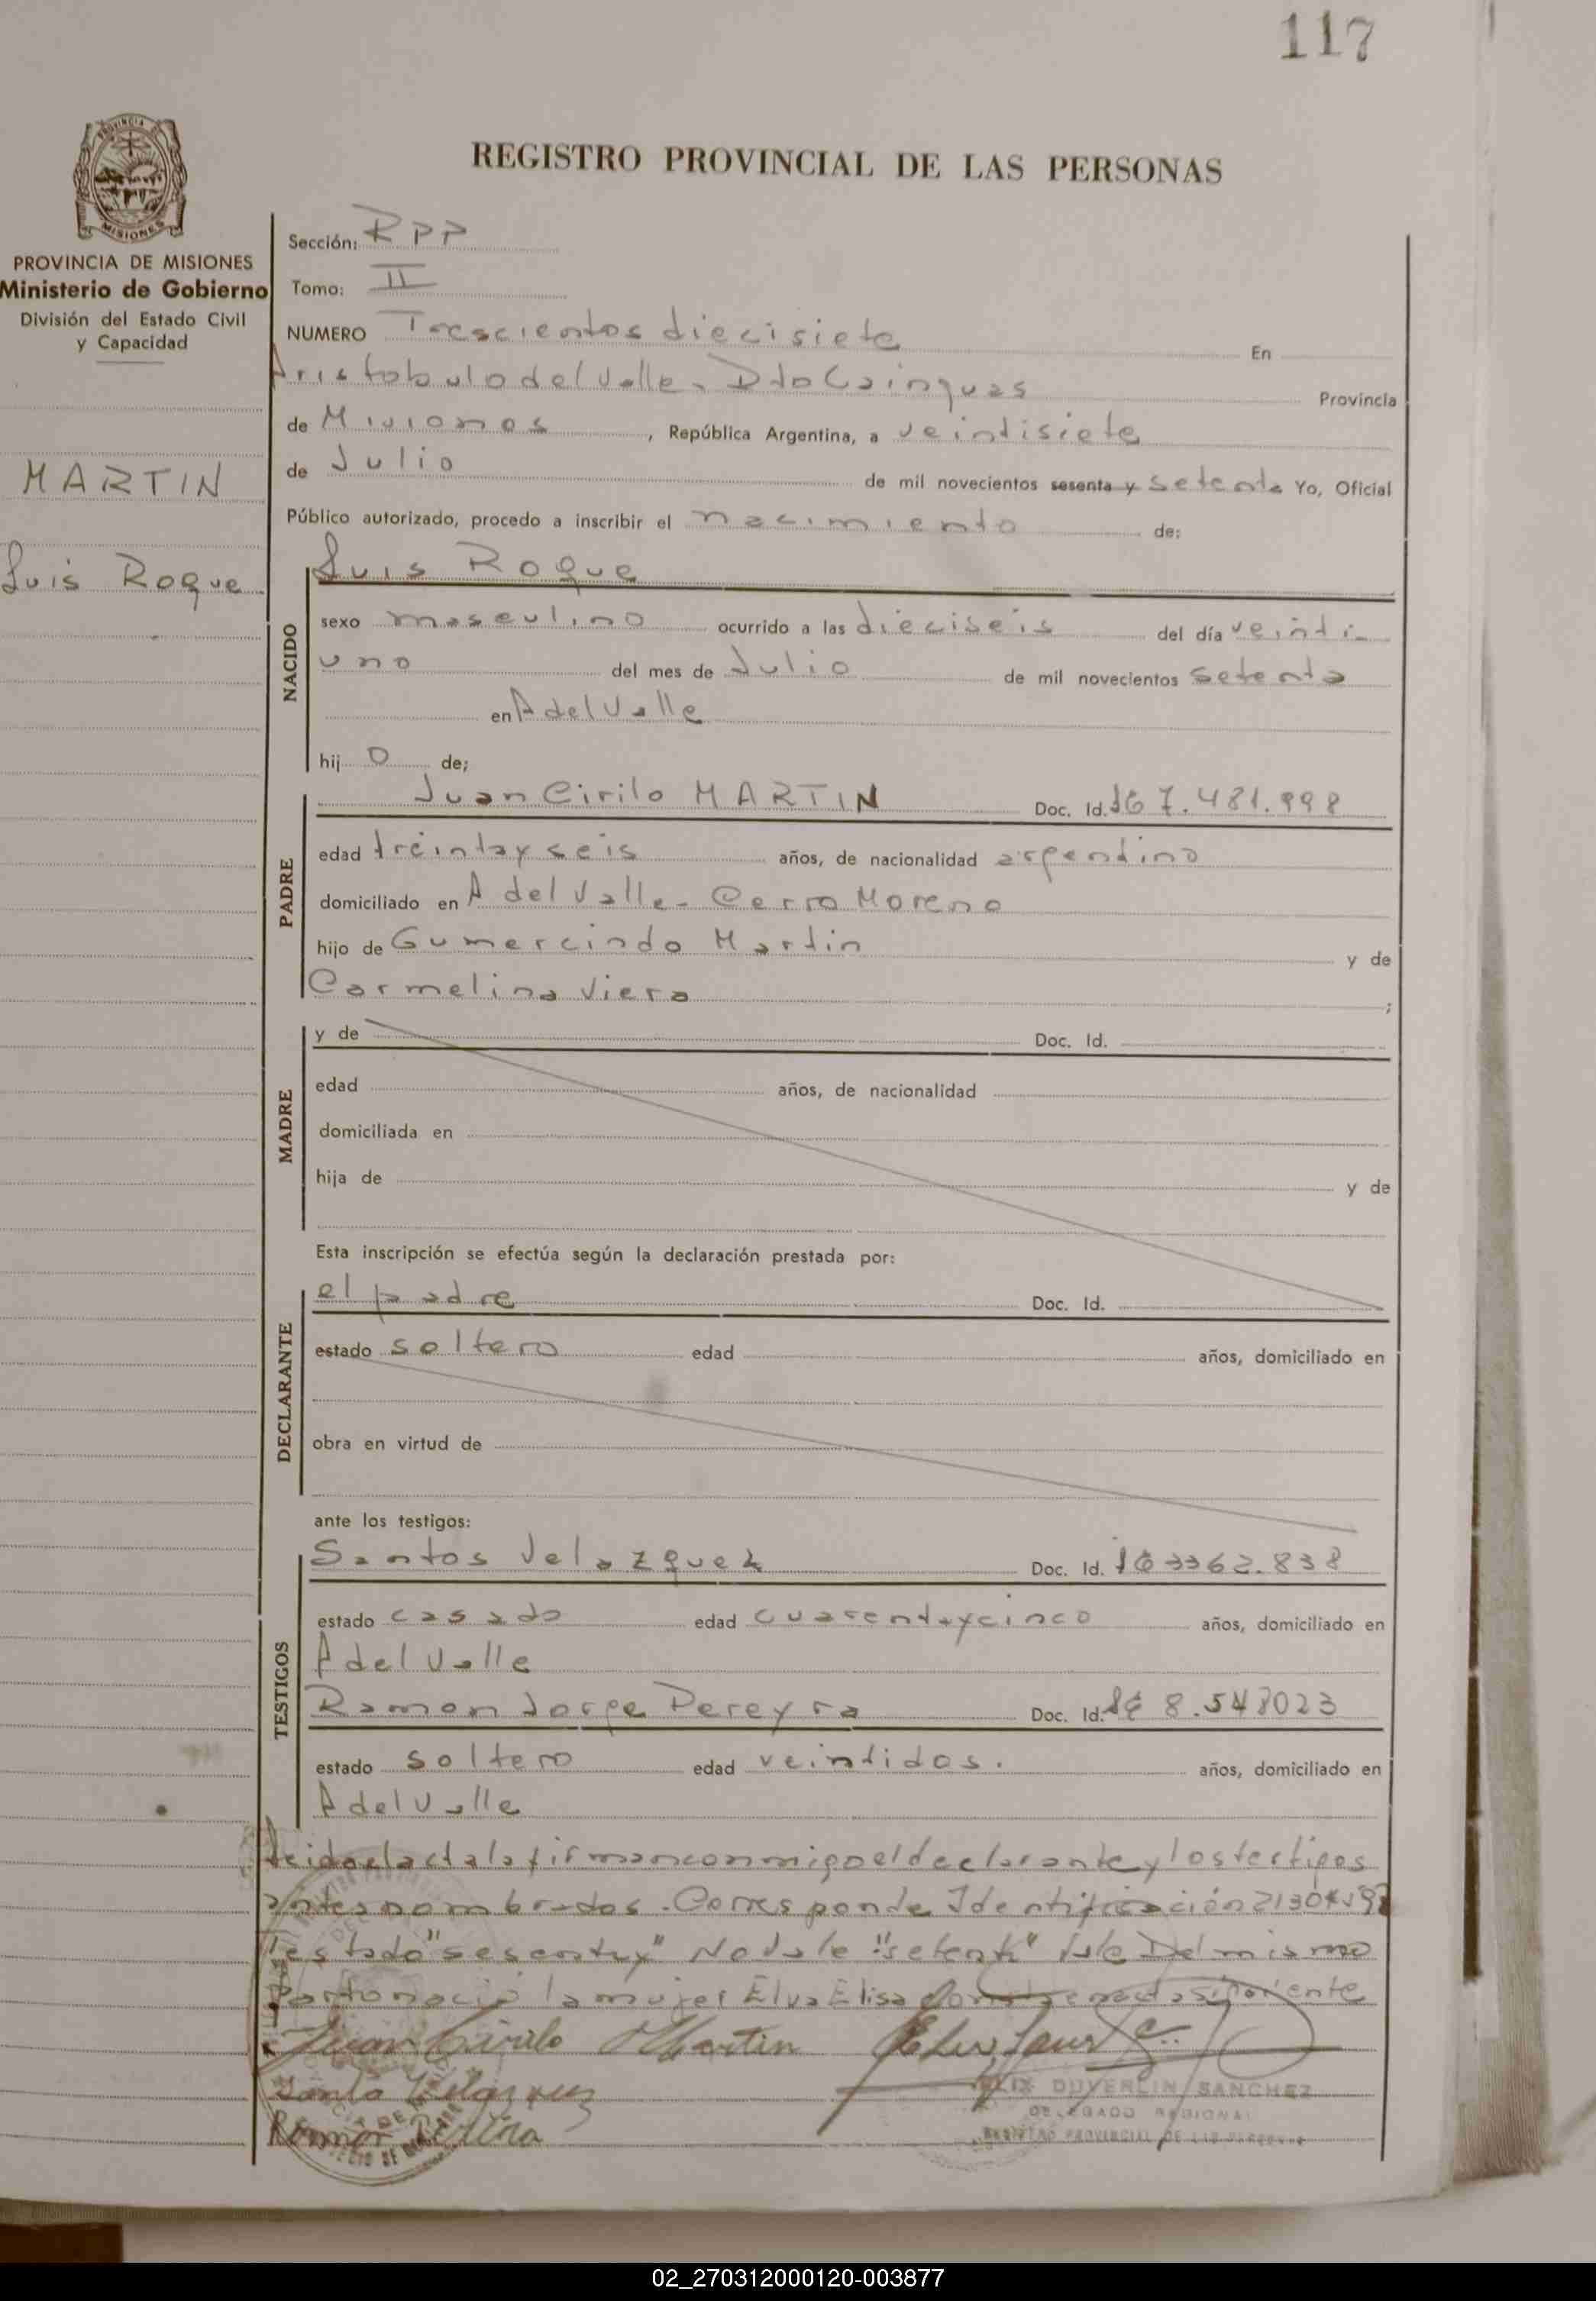 117
REGISTRO PROVINCIAL DE LAS PERSONAS
PROVINCIA DE MISIONES
Ministerio de Gobierno
División del Estado Civil
y Capacidad
MARTIN
Luis Roque
Sección: RPP
Tomo: II
NUMERO Trescientos diecisiete En
Aristobulo del Valle - Dto Cainguas Provincia
de Misiones, República Argentina, a veintisiete
de Julio de mil novecientos sesenta y setenta Yo, Oficial
Público autorizado, procedo a inscribir el nacimiento de:
Luis Roque
NACIDO
sexo masculino ocurrido a las dieciseis del día veinti-
uno del mes de Julio de mil novecientos setenta
en A del Valle
hij o de;
PADRE
Juan Cirilo MARTIN Doc. Id. 7.481.998
edad treintay seis años, de nacionalidad argentino
domiciliado en A del Valle - Cerro Moreno
hijo de Gumercindo Martin y de
Carmelina Viera ;
MADRE
y de Doc. Id.
edad años, de nacionalidad
domiciliada en
hija de y de
Esta inscripción se efectúa según la declaración prestada por:
DECLARANTE
el padre Doc. Id.
estado soltero edad años, domiciliado en
obra en virtud de
ante los testigos:
TESTIGOS
Santos Velazquez Doc. Id. 3362.838
estado casado edad cuarentaycinco años, domiciliado en
A del Valle
Ramon Jorge Pereyra Doc. Id. 8.548023
estado soltero edad veintidos. años, domiciliado en
A del Valle
Leida el acta la firman conmigo el declarante y los testigos
antes nombrados. Corresponde Identificación
Testado "sesenta y" No vale "setenta" vale Del mismo
parto nació la mujer Elva Elisa
Juan Cirilo Martin
Santo Velazquez
DUVERLIN SANCHEZ
DELEGADO REGIONAL
REGISTRO PROVINCIAL DE LAS PERSONAS
02_270312000120-003877